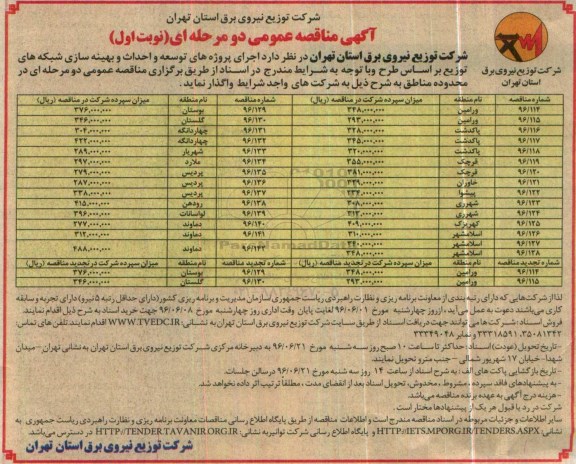 شرکت توزیع نیروی برق استان تهران
آگهی مناقصه عمومی دو مرحله ای (نوبت اول)
شرکت توزیع نیروی برق استان تهران در نظر دارد اجرای پروژه های توسعه و احداث و بهینه سازی شبکه های
توزیع بر اساس طرح و با توجه به شرایط مندرج در اسناد از طریق برگزاری مناقصه عمومی دو مرحله ای در
محدوده مناطق به شرح ذیل به شرکت های واجد شرایط واگذار نماید.
شرکت توزیع نیروی برق
استان تهران
شماره مناقصه نام منطقه میزان سپرده شرکت در مناقصه (ریال) شماره مناقصه نام منطقه میزان سپرده شرکت در مناقصه (ریال)
۹۶/۱۱۴ ورامین ۳۴۸,۰۰۰,۰۰۰ ۹۶/۱۲۹ بوستان ۳۷۶,۰۰۰,۰۰۰
۹۶/۱۱۵ ورامین ۲۹۳,۰۰۰,۰۰۰ ۹۶/۱۳۰ گلستان ۳۴۶,۰۰۰,۰۰۰
۹۶/۱۱۶ پاکدشت ۳۲۸,۰۰۰,۰۰۰ ۹۶/۱۳۱ چهاردانگه ۳۰۴,۰۰۰,۰۰۰
۹۶/۱۱۷ پاکدشت ۳۴۵,۰۰۰,۰۰۰ ۹۶/۱۳۲ چهاردانگه ۴۲۲,۰۰۰,۰۰۰
۹۶/۱۱۸ پاکدشت ۳۲۰,۰۰۰,۰۰۰ ۹۶/۱۳۳ شهریار ۲۸۹,۰۰۰,۰۰۰
۹۶/۱۱۹ قرچک ۳۵۵,۰۰۰,۰۰۰ ۹۶/۱۳۴ ملارد ۲۹۷,۰۰۰,۰۰۰
۹۶/۱۲۰ قرچک ۳۸۱,۰۰۰,۰۰۰ ۹۶/۱۳۵ پردیس ۲۷۹,۰۰۰,۰۰۰
۹۶/۱۲۱ خاوران ۳۳۹,۰۰۰,۰۰۰ ۹۶/۱۳۶ پردیس ۲۸۷,۰۰۰,۰۰۰
۹۶/۱۲۲ پیشوا ۳۳۴,۰۰۰,۰۰۰ ۹۶/۱۳۷ پردیس ۳۳۸,۰۰۰,۰۰۰
۹۶/۱۲۳ شهرری ۳۰۸,۰۰۰,۰۰۰ ۹۶/۱۳۸ رودهن ۴۱۵,۰۰۰,۰۰۰
۹۶/۱۲۴ شهرری ۳۱۲,۰۰۰,۰۰۰ ۹۶/۱۳۹ لواسانات ۳۹۶,۰۰۰,۰۰۰
۹۶/۱۲۵ کهریزک ۴۰۹,۰۰۰,۰۰۰ ۹۶/۱۴۰ دماوند ۲۷۷,۰۰۰,۰۰۰
۹۶/۱۲۶ اسلامشهر ۳۱۰,۰۰۰,۰۰۰ ۹۶/۱۴۱ دماوند ۳۱۲,۰۰۰,۰۰۰
۹۶/۱۲۷ اسلامشهر ۳۴۰,۰۰۰,۰۰۰ دماوند ۴۸۸,۰۰۰,۰۰۰
۹۶/۱۲۸ اسلامشهر ۳۴۸,۰۰۰,۰۰۰
شماره تجدید مناقصه نام منطقه میزان سپرده شرکت در تجدید مناقصه (ریال) شماره تجدید مناقصه نام منطقه میزان سپرده شرکت در تجدید مناقصه (ریال)
۹۶/۱۱۴ ورامین ۳۴۸,۰۰۰,۰۰۰ ۹۶/۱۲۹ بوستان ۳۷۶,۰۰۰,۰۰۰
۹۶/۱۱۵ ورامین ۲۹۳,۰۰۰,۰۰۰ ۹۶/۱۳۰ گلستان ۳۴۶,۰۰۰,۰۰۰
لذا از شرکت هایی که دارای رتبه بندی از معاونت برنامه ریزی و نظارت راهبردی ریاست جمهوری (سازمان مدیریت و برنامه ریزی کشور (دارای حداقل رتبه ۵ نیرو) دارای تجربه و سابقه
کاری می‌باشند دعوت به عمل می‌آید، از روز چهارشنبه مورخ ۹۶/۰۶/۰۱ لغایت پایان وقت اداری روز چهارشنبه مورخ ۹۶/۰۶/۰۸ جهت خرید اسناد به شرح ذیل اقدام نمایند.
فروش اسناد: شرکت ها می توانند جهت دریافت اسناد از طریق سایت شرکت توزیع نیروی برق استان تهران به نشانی: WWW.TVEDC.IR اقدام نمایند. تلفن های تماس:
۳۵۰۸۱۳۴۲، ۳۳۳۱۸۵۹۱ و نمابر ۳۳۳۴۹۰۴۸
-تاریخ تحویل (عودت) اسناد: حداکثر تا ساعت ۱۰ صبح روز سه شنبه مورخ ۹۶/۰۶/۲۱ به دبیرخانه مرکزی شرکت توزیع نیروی برق استان تهران به نشانی تهران - میدان
شهدا - خیابان ۱۷ شهریور شمالی - جنب مترو تحویل نمایند.
-تاریخ بازگشایی پاکت های الف: به شرح اسناد از ساعت ۱۴ روز سه شنبه مورخ ۹۶/۰۶/۲۱ در سالن جلسات.
-به پیشنهادهای فاقد سپرده، مشروط، مخدوش، تحویل اسناد بعد از انقضای مدت، مطلقاً ترتیب اثر داده نخواهد شد.
-هزینه درج آگهی به عهده برنده مناقصه می‌باشد.
شرکت در رد یا قبول هر یک از پیشنهادها مختار است.
سایر اطلاعات و جزئیات مربوطه در اسناد مناقصه مندرج است و اطلاعات مناقصه از طریق پایگاه اطلاع رسانی مناقصات معاونت برنامه ریزی و نظارت راهبردی ریاست جمهوری به
نشانی: HTTP://IETS.MPORG.IR/TENDERS.ASPX و پایگاه اطلاع رسانی شرکت توانیر به نشانی: HTTP://TENDER.TAVANIR.ORG.IR در دسترس می‌باشد.
شرکت توزیع نیروی برق استان تهران